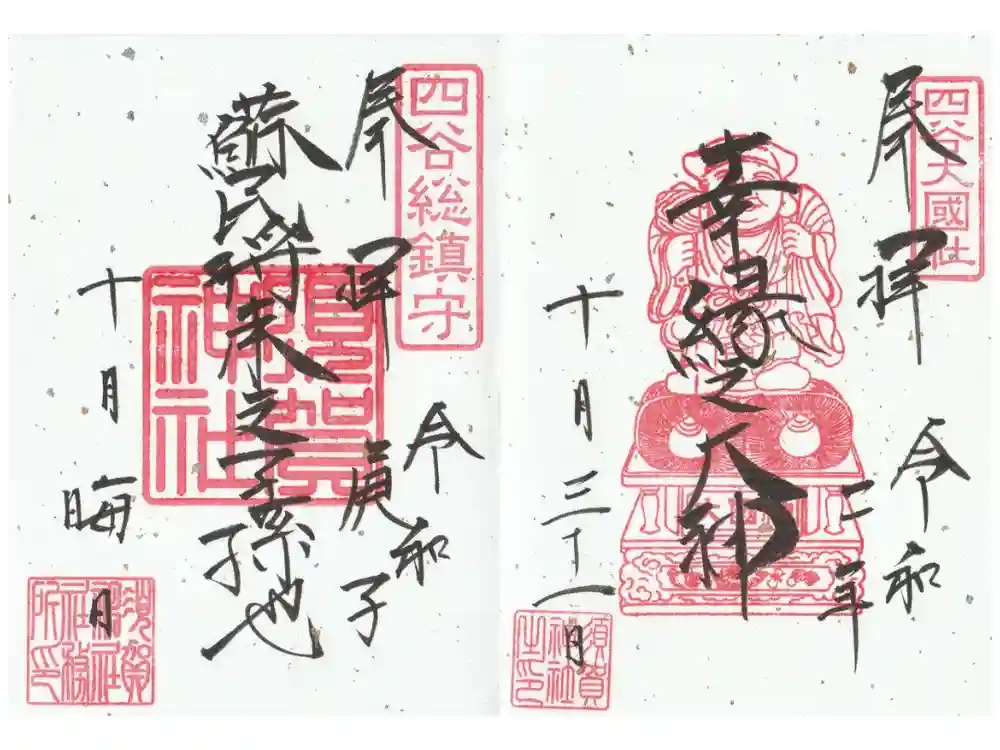 四谷大國社
奉拝
令和
二年
幸縁之大神
十月三十一日
須賀
神社
之印
四谷総鎮守
奉拝
令和
庚子
蘇民将来之子孫也
須賀
神社
十月晦日
須賀
神社
社務
所印